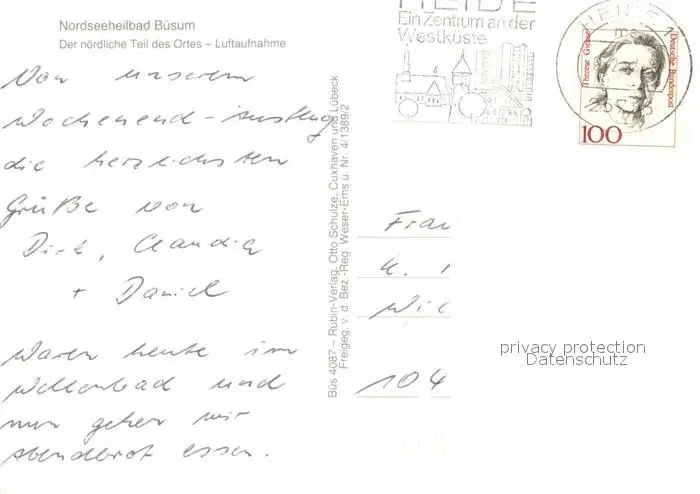 Nordseeheilbad Büsum
Der nördliche Teil des Ortes – Luftaufnahme
Von unserem
Wochenend-Ausflug
die herzlichsten
Grüße von
Dirk, Claudia
+ Daniel
Waren heute im
Wellenbad und
nun gehen wir
Abendbrot essen.
Büs 4087 – Rubin-Verlag, Otto Schulze, Cuxhaven und Lübeck
Freigeg. v. d. Bez.-Reg. Weser-Ems u. Nr. 4/1389/2
HEIDE
Ein Zentrum an der
Westküste
HEIDE
Therese Giehse
Deutsche Bundespost
100
Frau
K.
104
privacy protection
Datenschutz